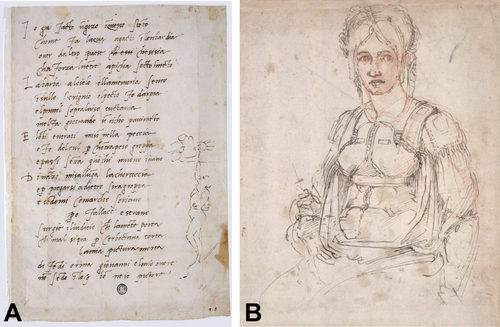 I o gia facto ngozo in questo stento
chome fa lacqua agacti in lombardia
over daltro paese che essi che si sia
cha forza lventre apicha socto lmento
L a barba al cielo ella memoria sento
in sullo scrignio el pecto fo darpia
el pennel sopra luiso tuctavia
mel fa gocciando u riccho pavimento
E lobi entrati miso nella peccia
e fo del cul p chotrapeso groppa
e passi seza gli ochi muovo inuano
D inazi misallunga la chorteccia
e p piegarsi adietro si ragroppa
e tedomi comarcho soriano
po fallace e strano
surgie il iuditio ch la mete porta
ch mal si tra p cerboctana torta
la mia pictura morta
di fedi orma giovanni el mio onore
no sedo i log bo ne io pictore
A
B